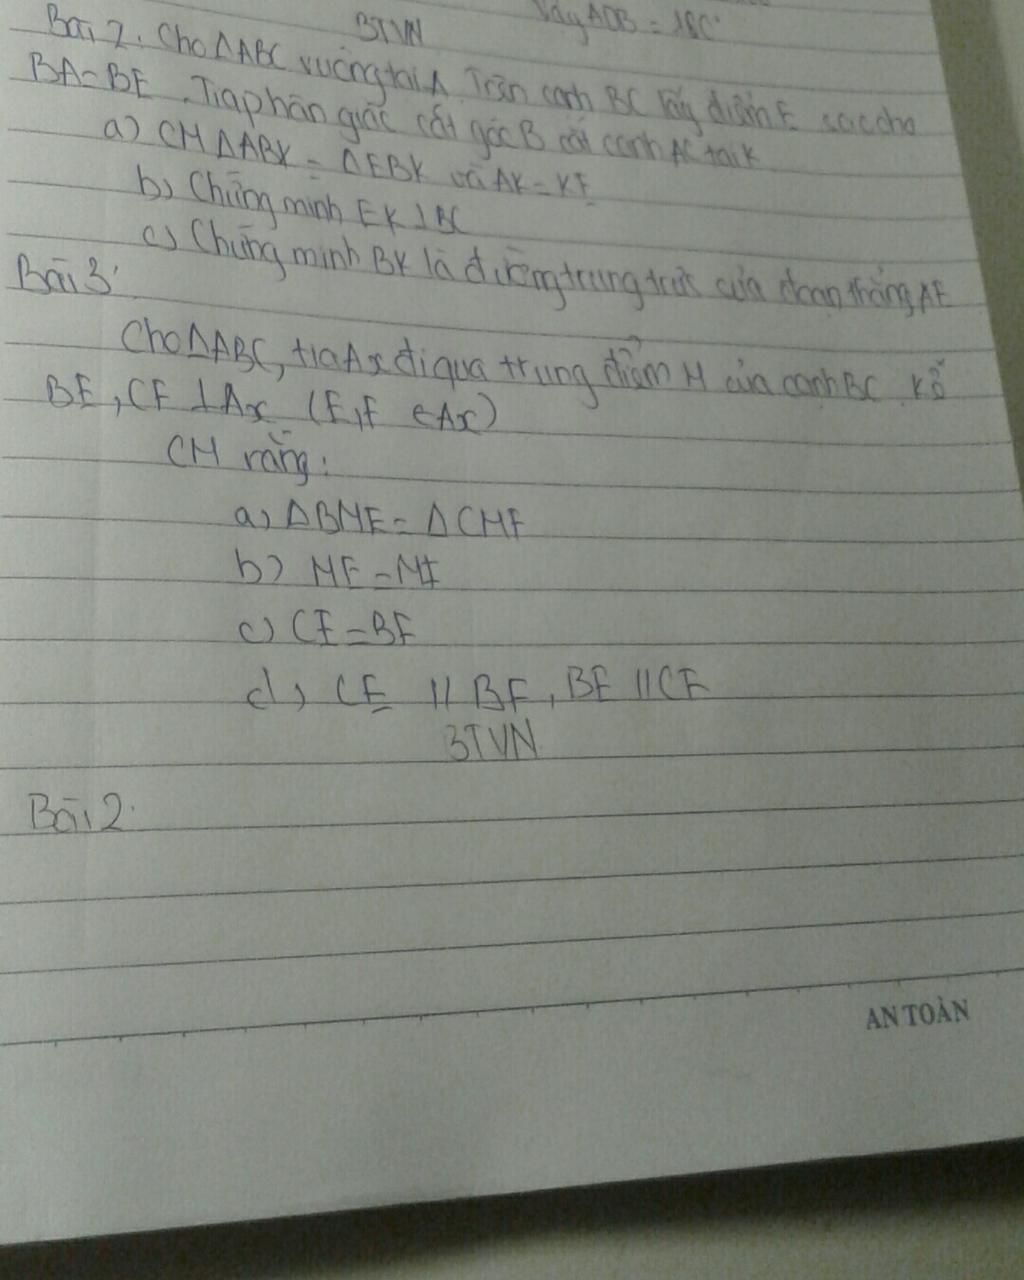 Vậy AOB = 180°
BTVN
Bài 2. Cho ΔABC vuông tại A. Trên cạnh BC lấy điểm E sao cho
BA = BE. Tia phân giác cắt góc B cắt cạnh AC tại K
a) CM ΔABK = ΔEBK và AK = KE
b) Chứng minh EK ⊥ BC
c) Chứng minh BK là đường trung trực của đoạn thẳng AE
Bài 3:
Cho ΔABC, tia Ax đi qua trung điểm M của cạnh BC. Kẻ
BE, CF ⊥ Ax (E, F ∈ Ax)
CM rằng:
a) ΔBME = ΔCMF
b) ME = MF
c) CE = BF
d) CE // BF, BE // CF
BTVN
Bài 2.
AN TOÀN